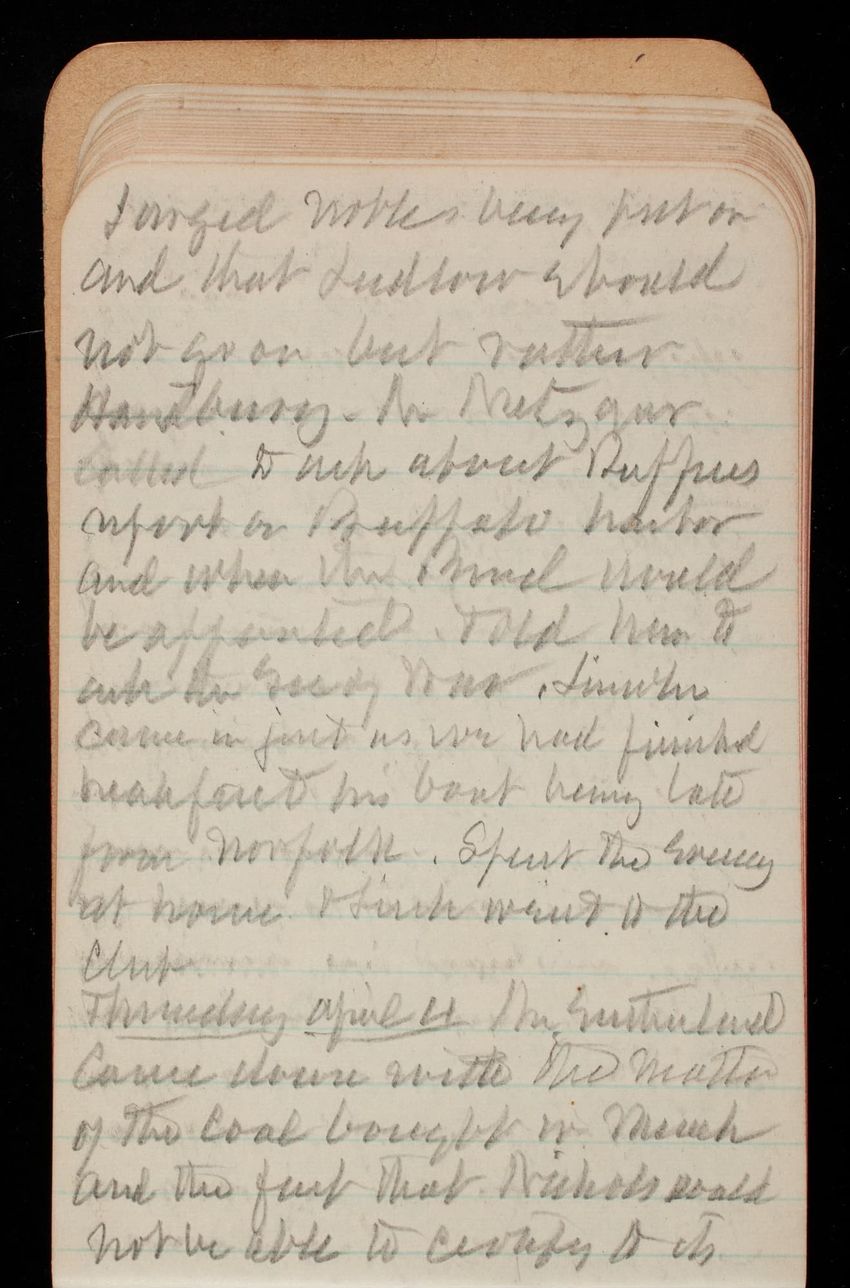 I urged Nobles being put on
and that Ludlow should
not go on but rather
Handbury. Mr Metzgar
called to ask about Ruffners
report on Buffalo harbor
and when the Board would
be appointed. Told him to
ask the Secy of War. Lincoln
came in just as we had finished
breakfast his boat being late
from Norfolk. Spent the evening
at home & Linch went to the
Club
Thursday April 11 Mr Sutherland
came down with the matter
of the coal bought in March
and the fact that Nichols could
not be able to certify to its